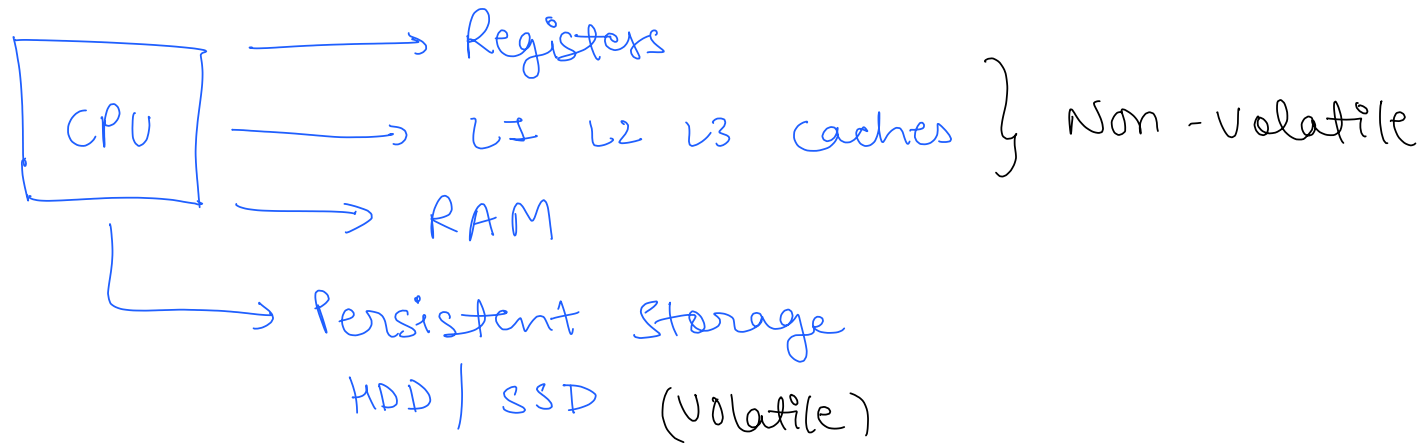 CPU
Registers
L1 L2 L3 Caches
Non-Volatile
RAM
Persistent Storage
HDD | SSD (Volatile)